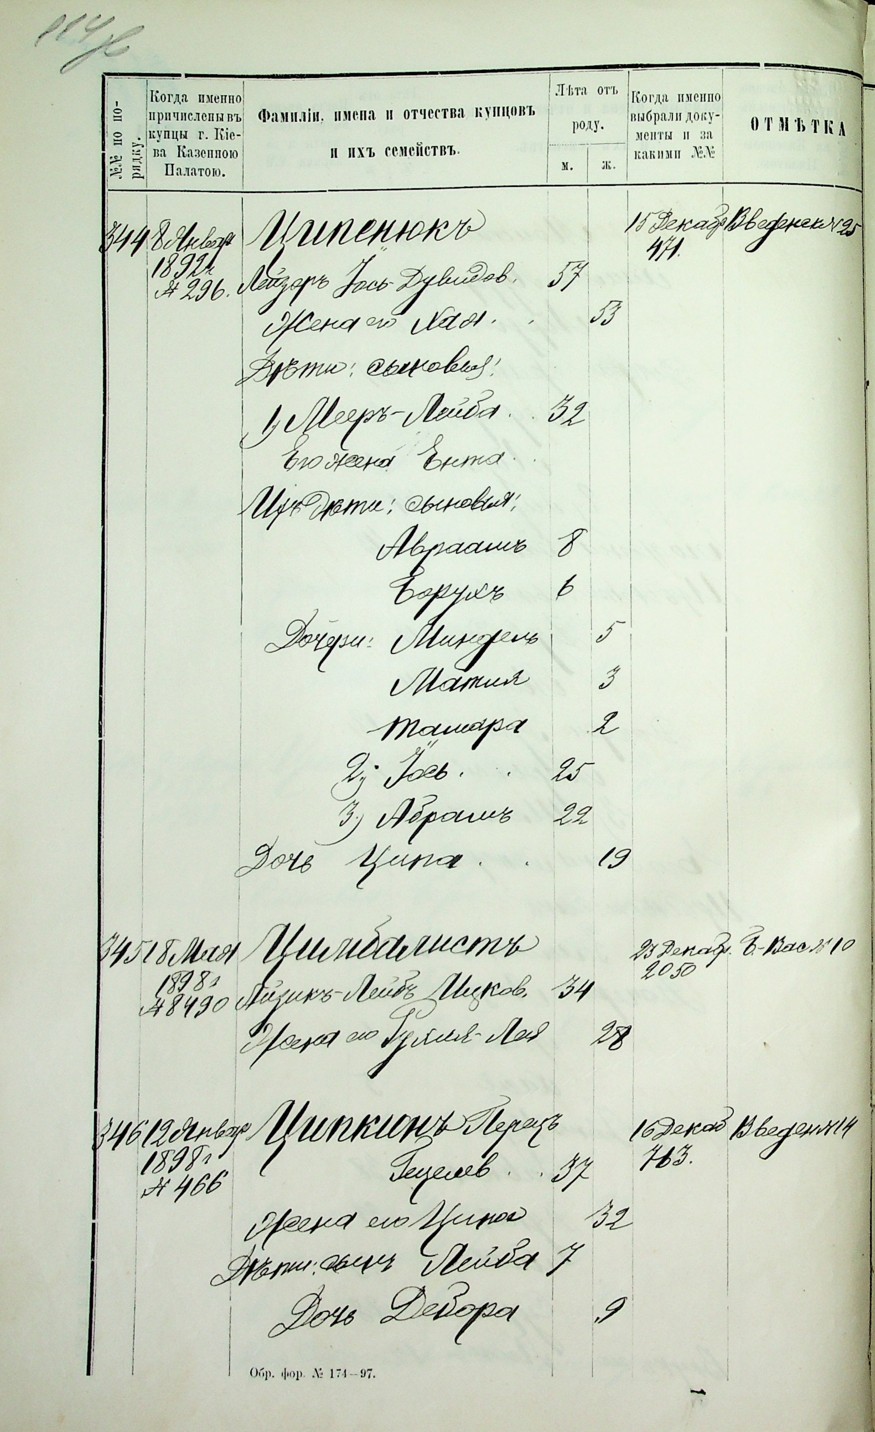 №№ по порядку.
Когда именно причислены въ купцы г. Кіева Казенною Палатою.
Фамиліи, имена и отчества купцовъ и ихъ семействъ.
Лѣта отъ роду.
м.
ж.
Когда именно выбрали документы и за какими №№
ОТМѢТКА
344 8 Января Ципенюкъ 15 Декабр Введенск № 25
1892 г. 471.
№ 296. Лейзеръ Іось Дувидов. 57
Жена его Хая. 53
Дѣти: сыновья:
1) Мееръ-Лейба. 32
Его жена Ента
Ихъ дѣти: сыновья:
Авраамъ 8
Борухъ 6
Дочери: Миндель 5
Матия 3
Тамара 2
2) Іось. 25
3) Абрамъ 22
Дочь Ципа. 19
345 18 Мая Цимбалистъ 23 Декабр. Б.-Вас № 10
1898 г 2050
№ 8490 Айзикъ-Лейбъ Ицков. 34
Жена его Рухля-Лея 28
346 12 Январ Ципкинъ Перецъ 16 Декаб Введен № 14
1898 г Гецелев. 37 763.
№ 466
Жена его Ципа 32
Дѣти: сынъ Лейба 7
Дочь Дебора 9
Обр. фор. № 174—97.